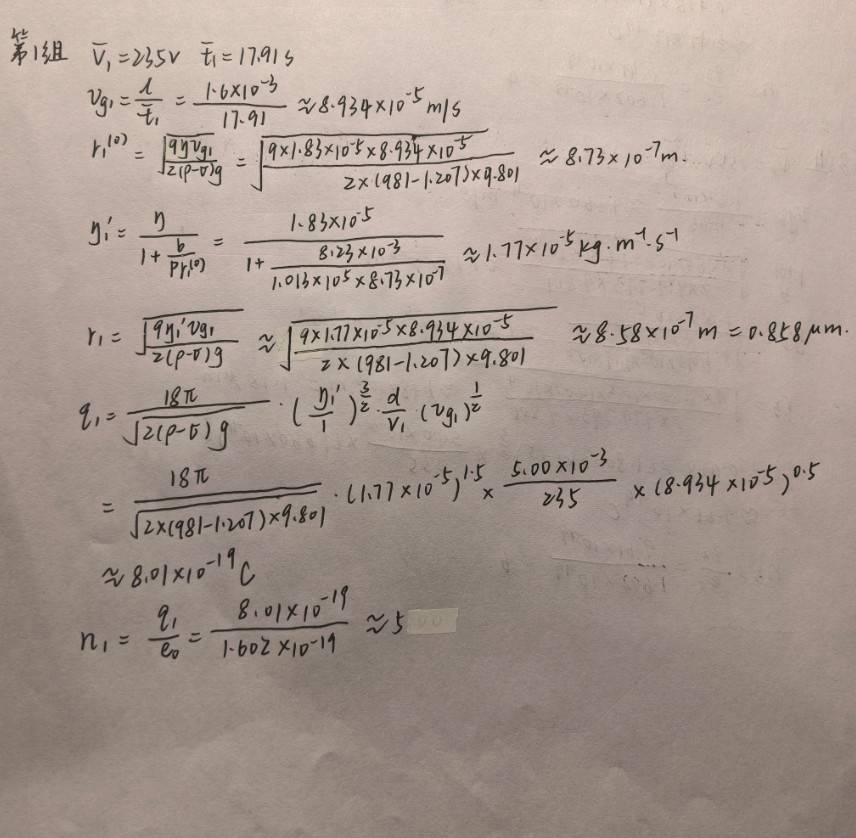 第1组 V̄₁=235V t̄₁=17.91s
v_g₁ = l/t̄₁ = 1.6×10⁻³/17.91 ≈ 8.934×10⁻⁵ m/s
r₁⁽⁰⁾ = √(9ηv_g₁/2(ρ-σ)g) = √(9×1.83×10⁻⁵×8.934×10⁻⁵/2×(981-1.207)×9.801) ≈ 8.73×10⁻⁷m.
η₁' = η/(1+b/(pr₁⁽⁰⁾)) = 1.83×10⁻⁵/(1+8.23×10⁻³/(1.013×10⁵×8.73×10⁻⁷)) ≈ 1.77×10⁻⁵ kg·m⁻¹·s⁻¹
r₁ = √(9η₁'v_g₁/2(ρ-σ)g) ≈ √(9×1.77×10⁻⁵×8.934×10⁻⁵/2×(981-1.207)×9.801) ≈ 8.58×10⁻⁷m = 0.858μm.
q₁ = 18π/√(2(ρ-σ)g) · (η₁'/1)^(3/2) · d/V₁ · (v_g₁)^(1/2)
= 18π/√(2×(981-1.207)×9.801) · (1.77×10⁻⁵)^1.5 × 5.00×10⁻³/235 × (8.934×10⁻⁵)^0.5
≈ 8.01×10⁻¹⁹C
n₁ = q₁/e₀ = 8.01×10⁻¹⁹/1.602×10⁻¹⁹ ≈ 5